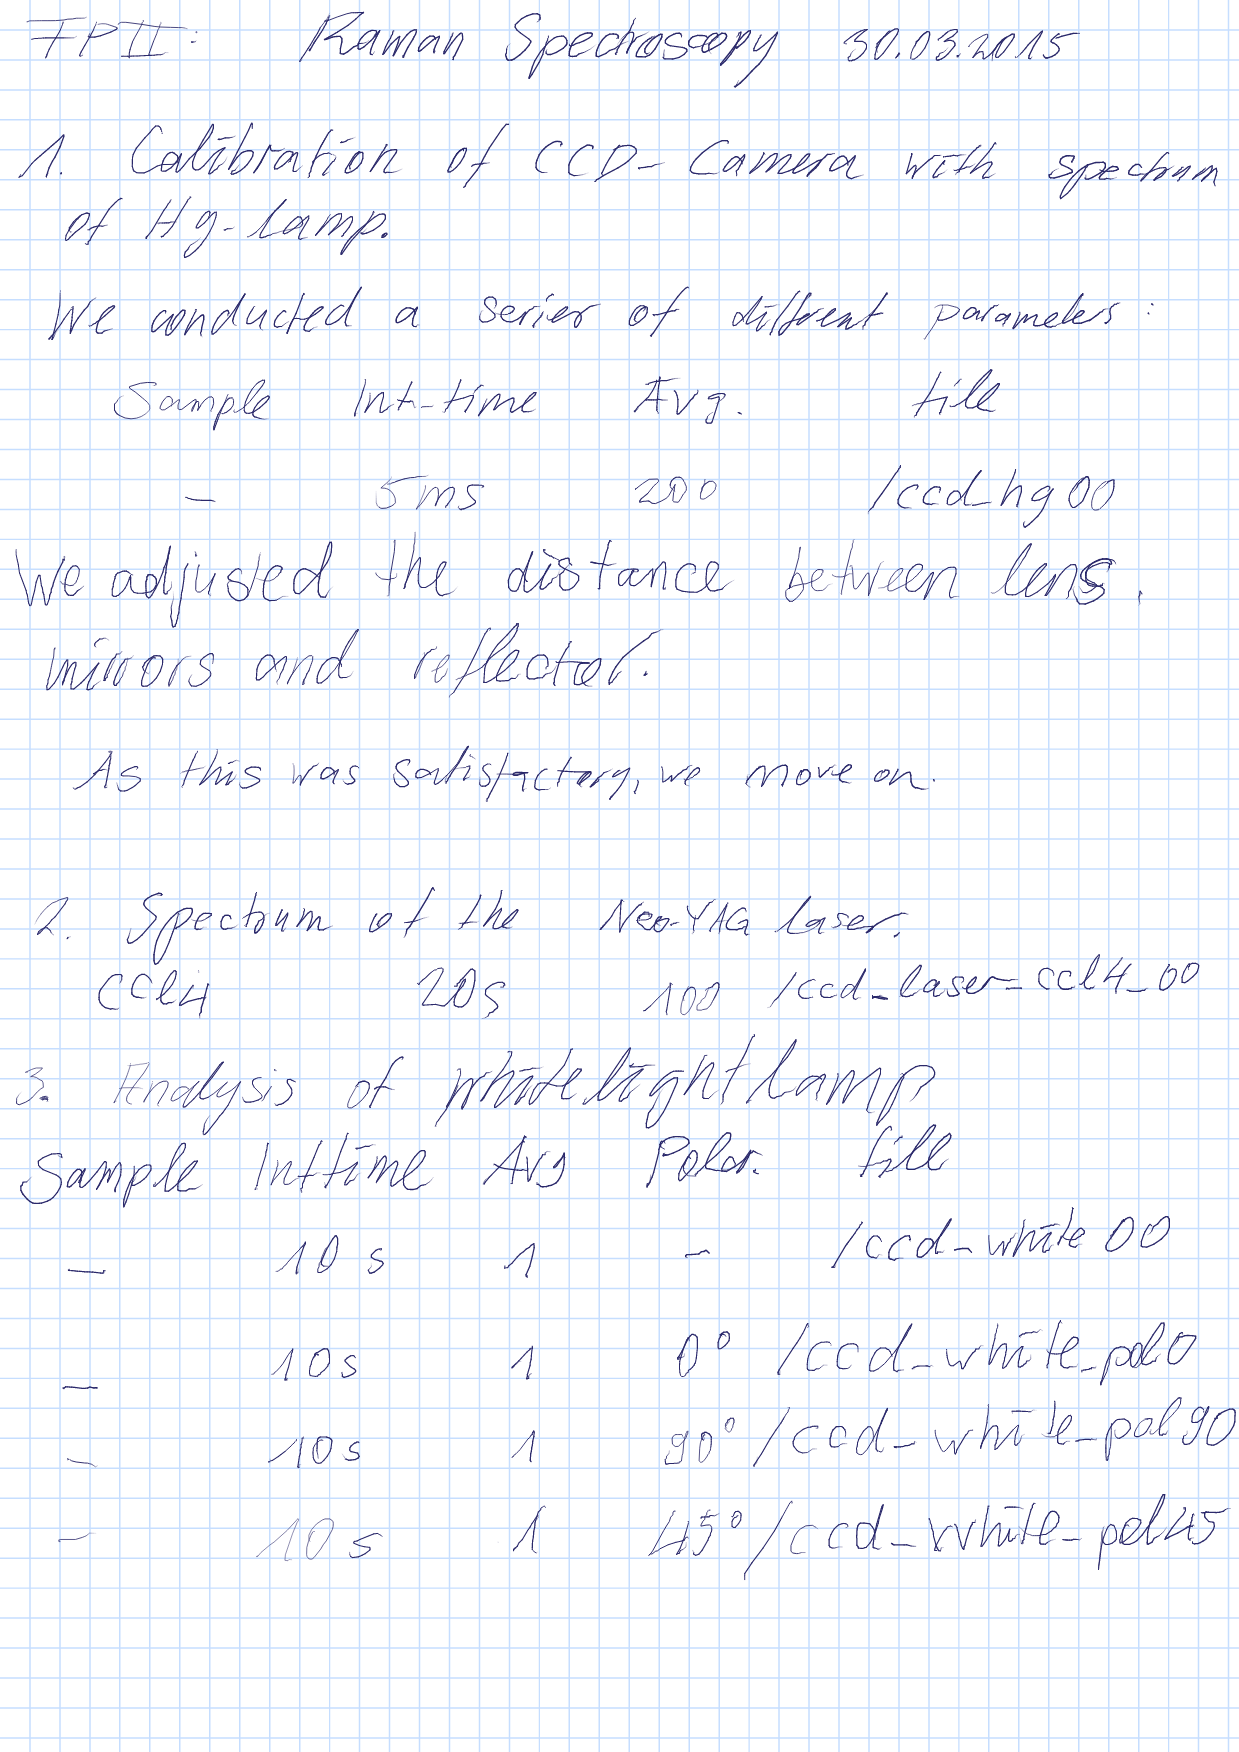 FPII: Raman Spectroscopy 30.03.2015
1. Calibration of CCD-Camera with spectrum
of Hg-Lamp.
We conducted a series of different parameters:
Sample Int-time Avg. file
- 5ms 200 /ccd_hg00
We adjusted the distance between lens,
mirrors and reflector.
As this was satisfactory, we move on.
2. Spectrum of the Neo-YAG laser.
CCl4 20s 100 /ccd_laser_ccl4_00
3. Analysis of whitelightlamp
Sample Inttime Avg Polar. file
- 10 s 1 - /ccd_white00
- 10s 1 0° /ccd_white_pol0
- 10s 1 90° /ccd_white_pol90
- 10 s 1 45° /ccd_white_pol45